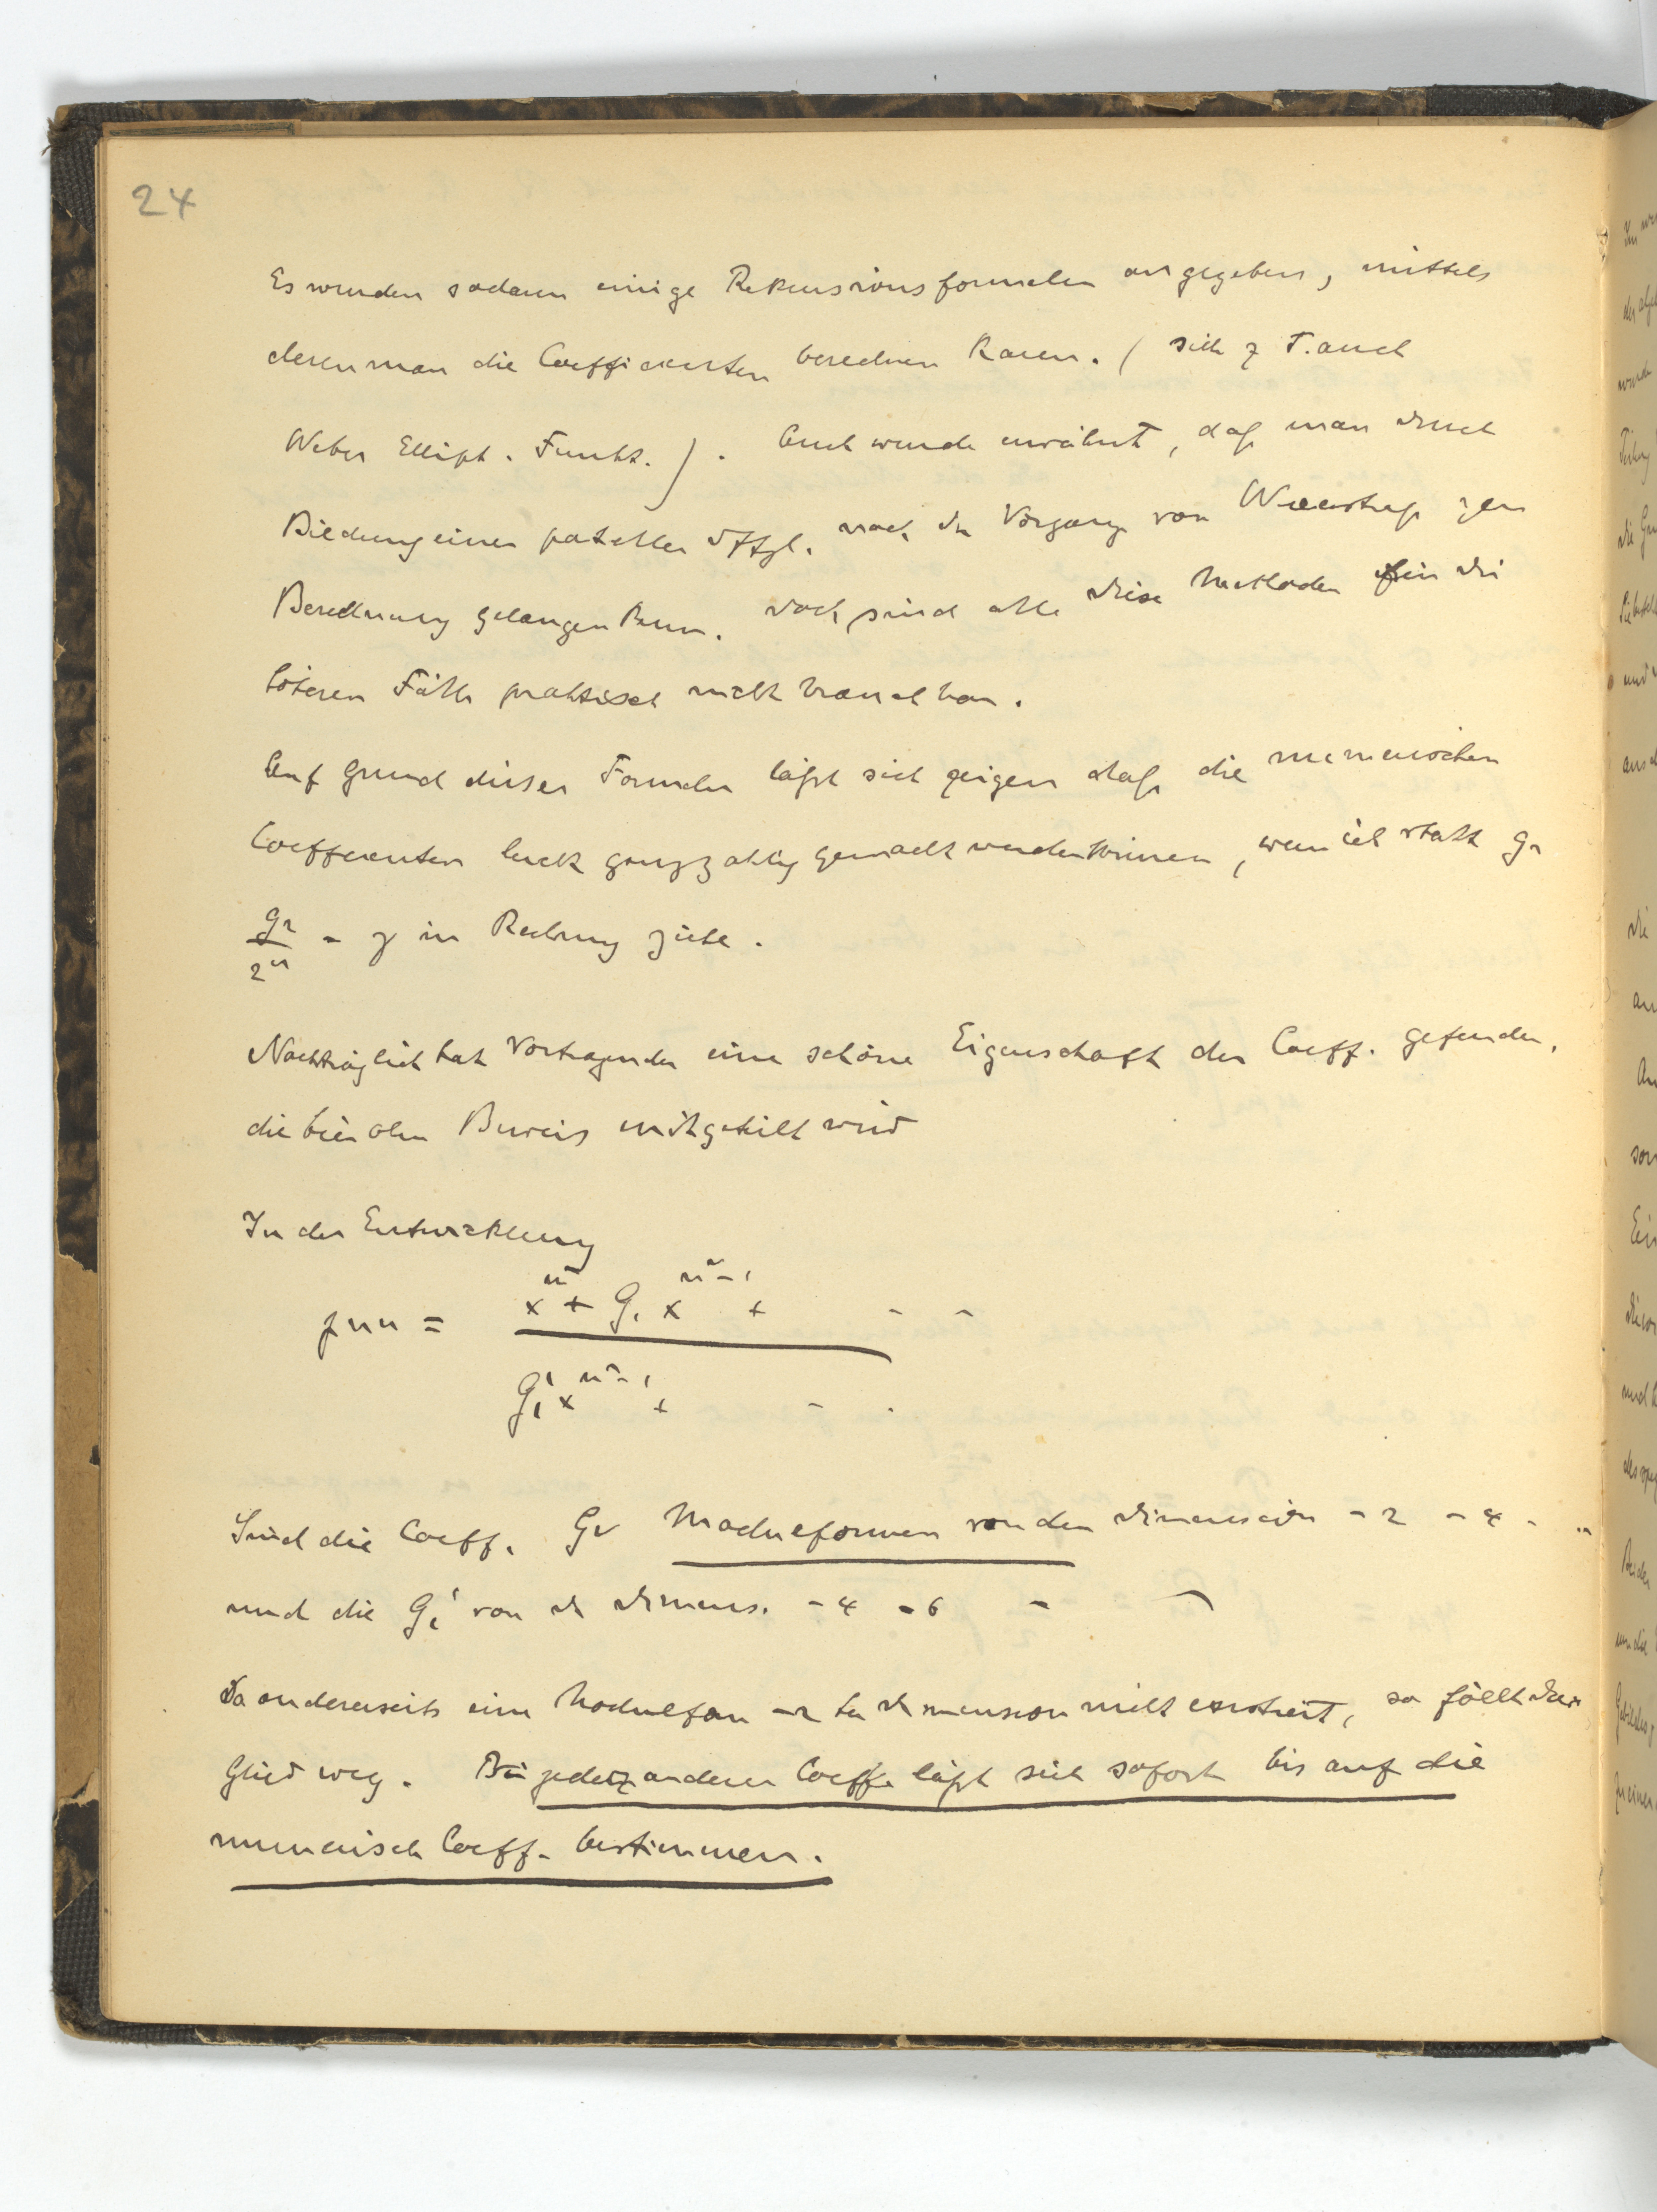 24
Es wurden sodann einige Rekursionsformeln angegeben, mittels
deren man die Coefficienten berechnen kann. ( siehe z. T. auch
Weber Ellipt. Funkt. ) . Auch wurde erwähnt, daß man durch
Bildung einer partiellen Dffgl. nach dem Vorgange von Weierstraß zur
Berechnung gelangen kann. Doch sind alle diese Methoden für die
höheren Fälle praktisch nicht brauchbar.
Auf Grund dieser Formeln läßt sich zeigen daß die numerischen
Coefficienten leicht ganzzahlig gemacht werden können, wenn ich statt g₂
g₂/2² = γ in Rechnung ziehe.
Nachträglich hat Vortragender eine schöne Eigenschaft der Coeff. gefunden,
die hier ohne Beweis mitgeteilt wird
In der Entwicklung
pnu = x^{n²} + G₁ x^{n²-1} + - -
G₁' x^{n²-1} + - .
Sind die Coeff. Gν Modulformen von den Dimension -2 -4 - ..
und die Gi' von der Dimens. -4 -6 -
Da andererseits eine Modulform -2 ter Dimension nicht existiert, so fällt dies
Glied weg. Die jedes anderen Coeff. läßt sich sofort bis auf die
numerisch Coeff. bestimmen.